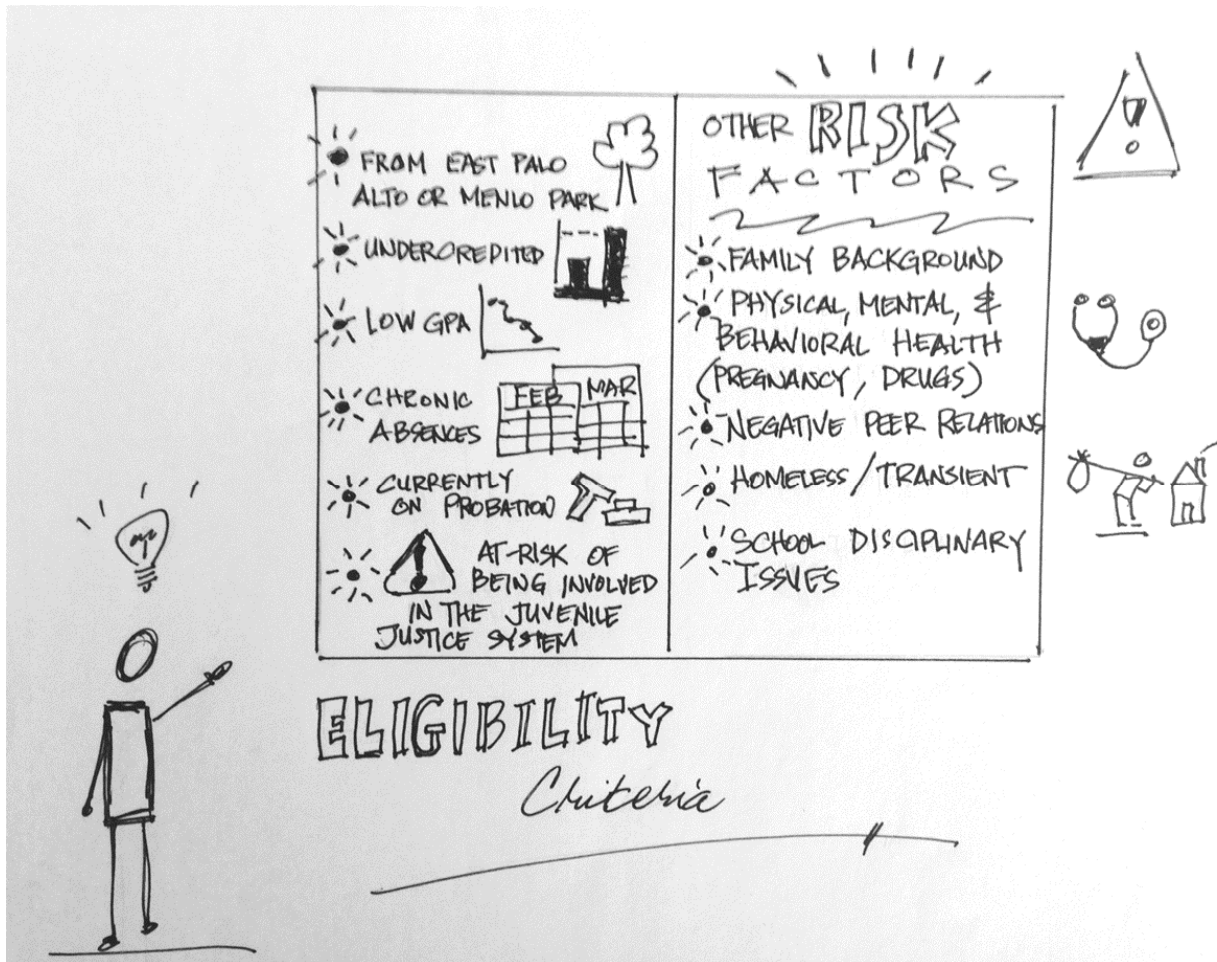 FROM EAST PALO
ALTO OR MENLO PARK
UNDERCREDITED
LOW GPA
CHRONIC
ABSENCES
FEB
MAR
CURRENTLY
ON PROBATION
AT-RISK OF
BEING INVOLVED
IN THE JUVENILE
JUSTICE SYSTEM
OTHER RISK
FACTORS
FAMILY BACKGROUND
PHYSICAL, MENTAL, &
BEHAVIORAL HEALTH
(PREGNANCY, DRUGS)
NEGATIVE PEER RELATIONS
HOMELESS / TRANSIENT
SCHOOL DISCIPLINARY
ISSUES
ELIGIBILITY
Criteria